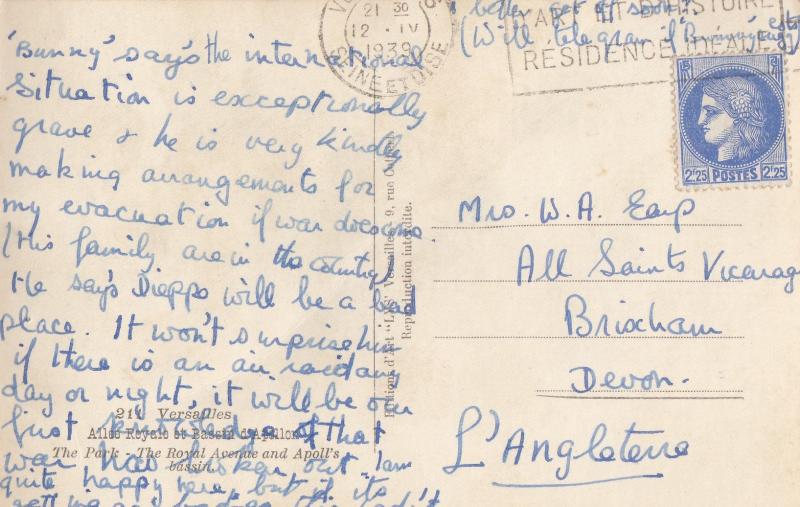 'Bunny' say's the international
situation is exceptionally
grave & he is very kindly
making arrangements for
my evacuation if war does come.
(His family are in the country
He say's Dieppe will be a bad
place. It won't surprise him
if there is an air raid any
day or night, it will be our
first knowledge of that
war has broken out. I am
quite happy here, but if its
getting as bad as
better get off soon.
(Will telegram if 'Bunny'
21 30
12 · IV
1939
SEINE ET OISE
ART ET D'HISTOIRE
RÉSIDENCE IDÉALE
POSTES
2f25 2f25
Mrs. W. A. Earp
All Saints Vicarage
Brixham
Devon.
L'Angleterre
Editions d'Art "LYS" Versailles, 9, rue
Reproduction interdite.
211 Versailles
Allée Royale et Bassin d'Apollon
The Park - The Royal Avenue and Apoll's
bassin